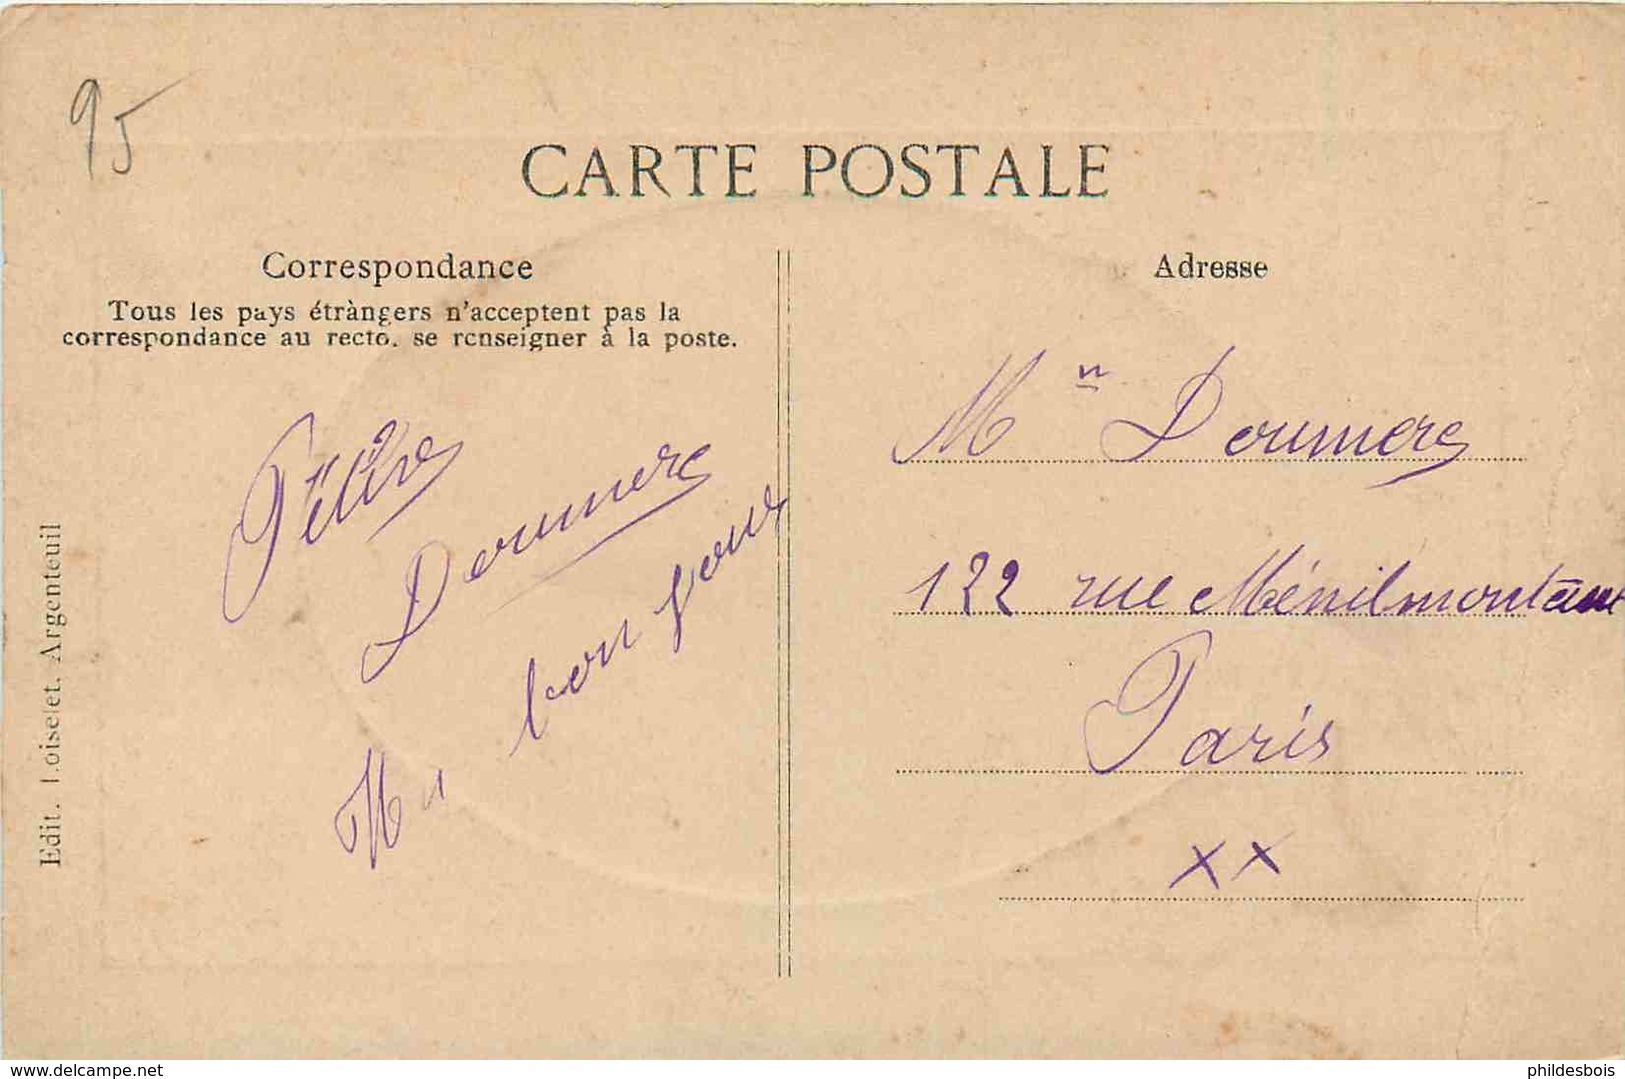 95
CARTE POSTALE
Correspondance
Tous les pays étràngers n'acceptent pas la
correspondance au recto. se renseigner à la poste.
Doumerg
bonjour
Edit. Loiselet. Argenteuil
Adresse
M Doumerg
122 rue Ménilmontant
Paris
xx
www.delcampe.net
phildesbois